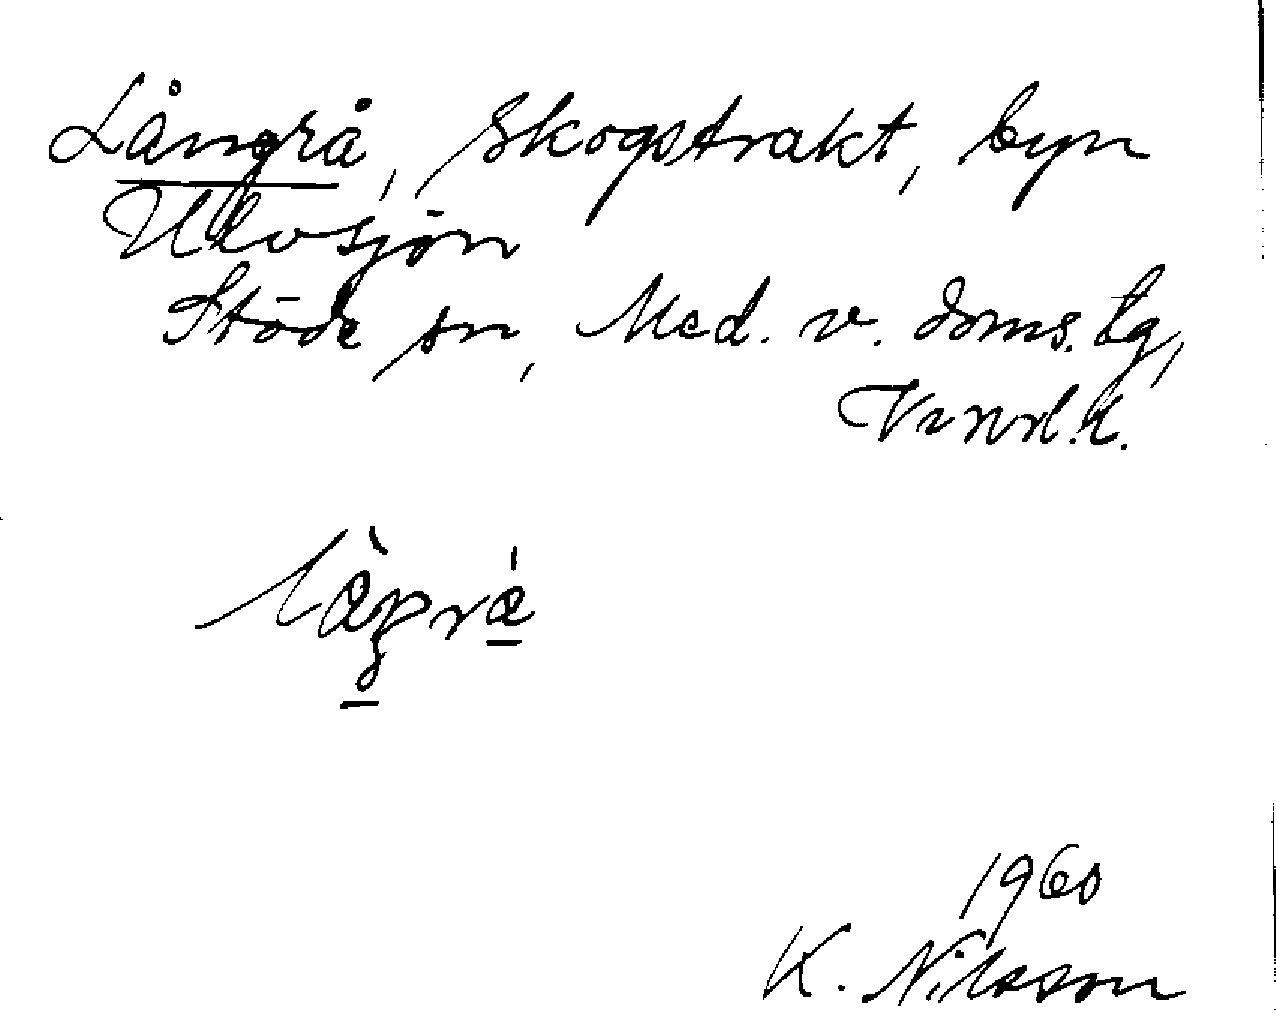 Långrå, skogstrakt, byn
Ulvsjön
Stöde sn, Med. v. doms. tg,
Vnrl.l.
1960
K. Nilsson